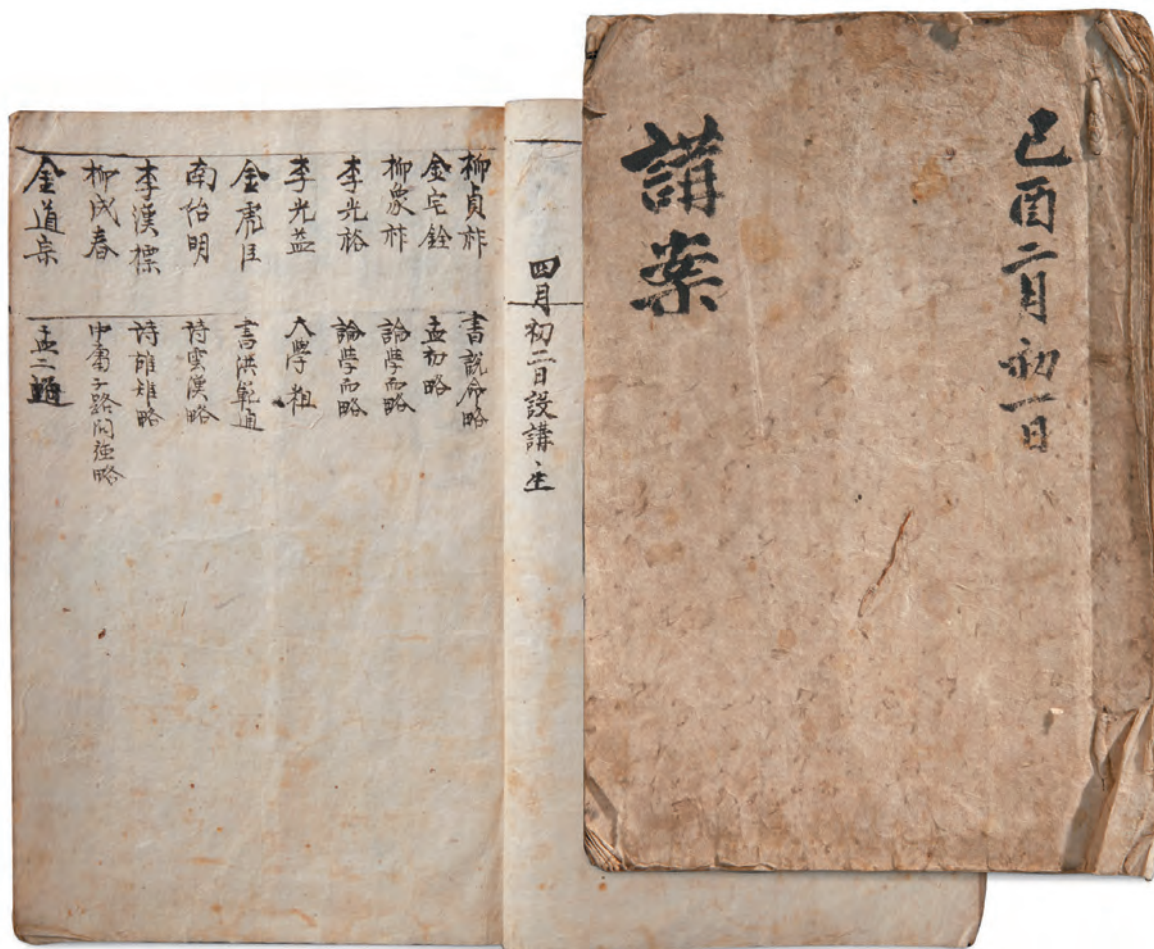 己酉二月初一日
講案
四月初二日設講 生
柳貞祚 書說命略
金宅銓 孟初略
柳象祚 論學而略
李光裕 論學而略
李光益 大學粗
金虎臣 書洪範通
南 明 詩雲漢略
李漢標 詩雄雉略
柳成春 中庸子路問强略
金道宗 孟二通